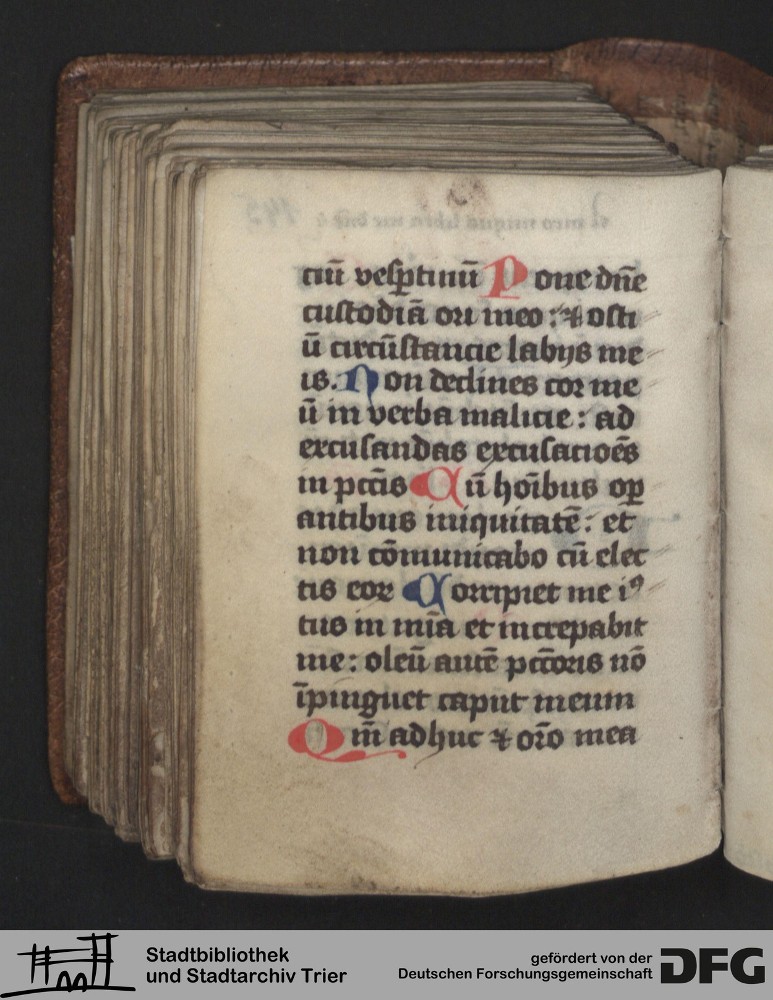 ciū vesꝑtinū Pone dn̄e
custodiā ori meo : ⁊ osti
ū circūstancie labijs me
is. Non declines cor me
ū in verba malicie : ad
excusandas excusacioēs
in pcc̄is Cū hoībus oꝑ
antibus iniquitatē : et
non cōmunicabo cū elec
tis eoꝝ Corripiet me iꝰ
tus in mīa et increpabit
me : oleū autē pctōris nō
īpinguet caput meum
Qm̄ adhuc ⁊ orō mea
Stadtbibliothek
und Stadtarchiv Trier
gefördert von der
Deutschen Forschungsgemeinschaft
DFG